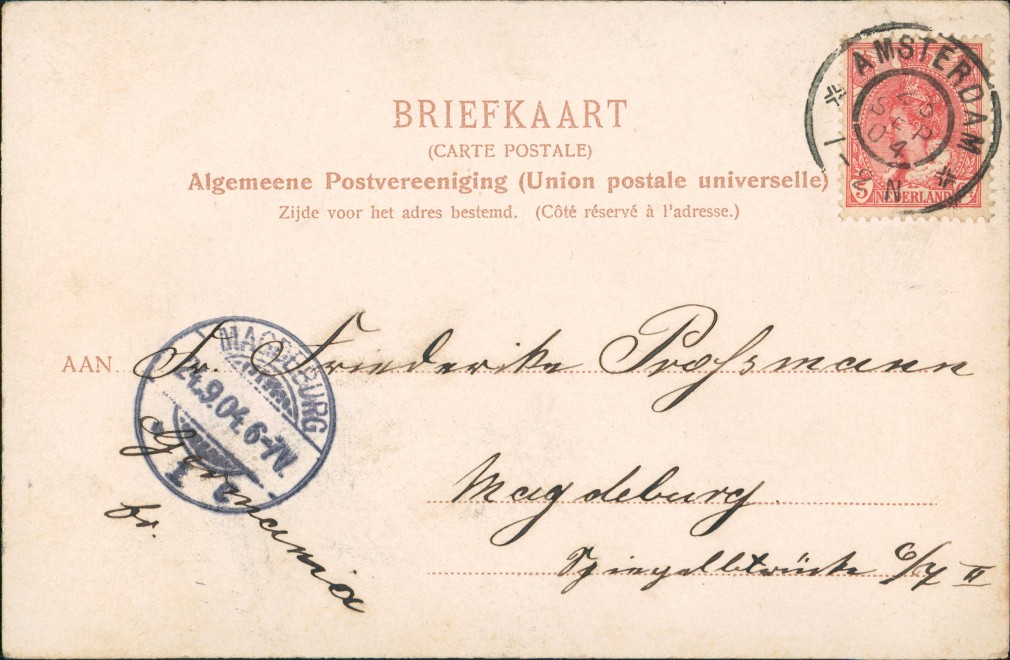 BRIEFKAART
(CARTE POSTALE)
Algemeene Postvereeniging (Union postale universelle)
Zijde voor het adres bestemd. (Côté réservé à l'adresse.)
AMSTERDAM
SEP
04
1-2 N
5 NEDERLAND
MAGDEBURG
24.9.04.6-7V.
1
AAN Fr. Friederike
Magdeburg.
6/7 II
Germania
fr.